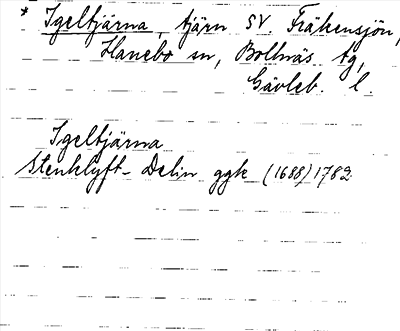 * Igeltjärna, tjärn SV. Fräkensjön,
Hanebo sn, Bollnäs tg,
Gävleb. l.
Igeltjärna
Stenklyft- Delin ggk (1688) 1782